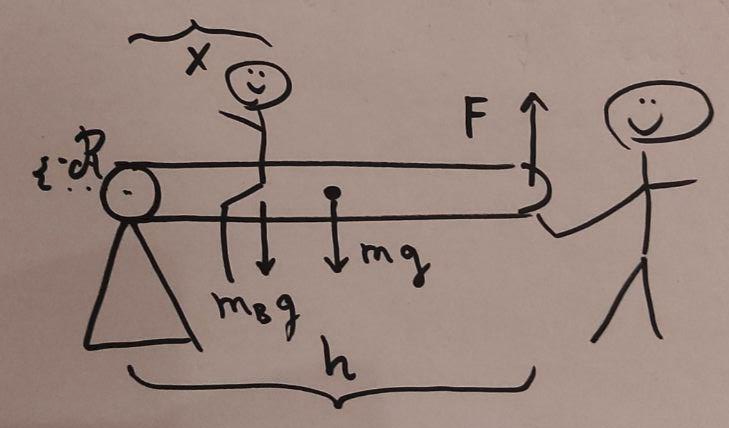 x
F
R
mg
m_B g
h